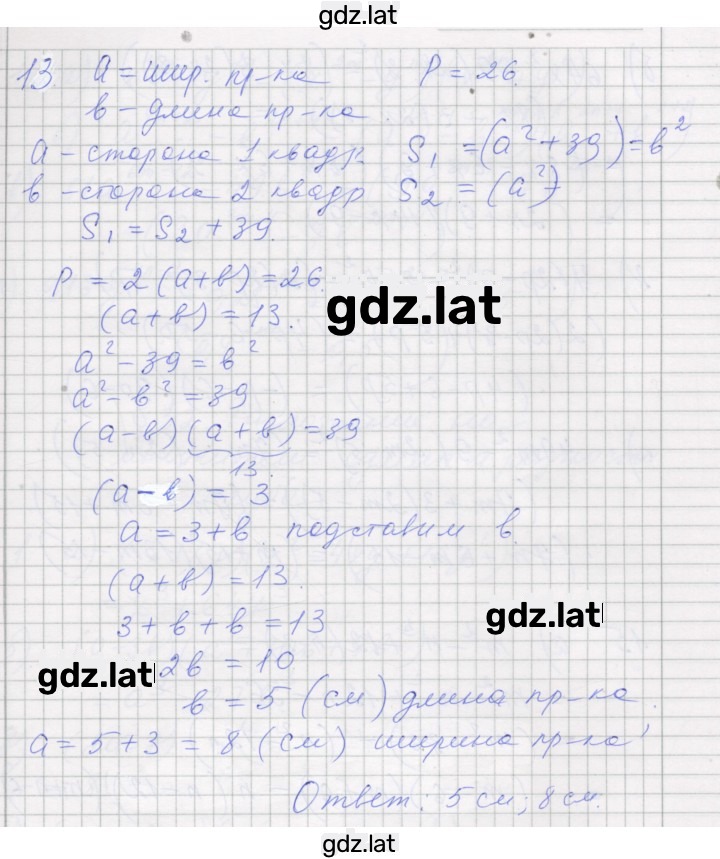 gdz.lat
13 a = шир. пр-ка P = 26.
в - длина пр-ка
a - сторона 1 квадр. S₁ = (a² + 39) = в²
в - сторона 2 квадр S₂ = (a²)
S₁ = S₂ + 39.
P = 2 (a+в) = 26.
(a+в) = 13.
gdz.lat
a² - 39 = в²
a² - в² = 39
(a-в) (a+в) = 39
13.
(a-в) = 3
a = 3 + в. подставим в.
(a+в) = 13.
gdz.lat
3 + в + в = 13
gdz.lat
2в = 10
в = 5 (см) длина пр-ка.
a = 5 + 3 = 8 (см) ширина пр-ка
Ответ: 5 см; 8 см.
gdz.lat